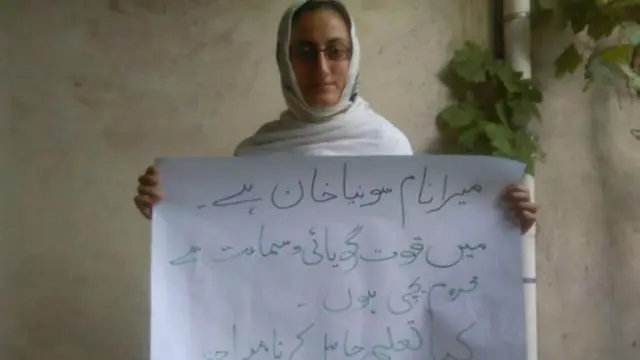 میرا نام سونیا خان ہے۔
میں قوت گویائی و سماعت سے
محروم بچی ہوں ۔
کیا تعلیم حاصل کرنا میرا حق